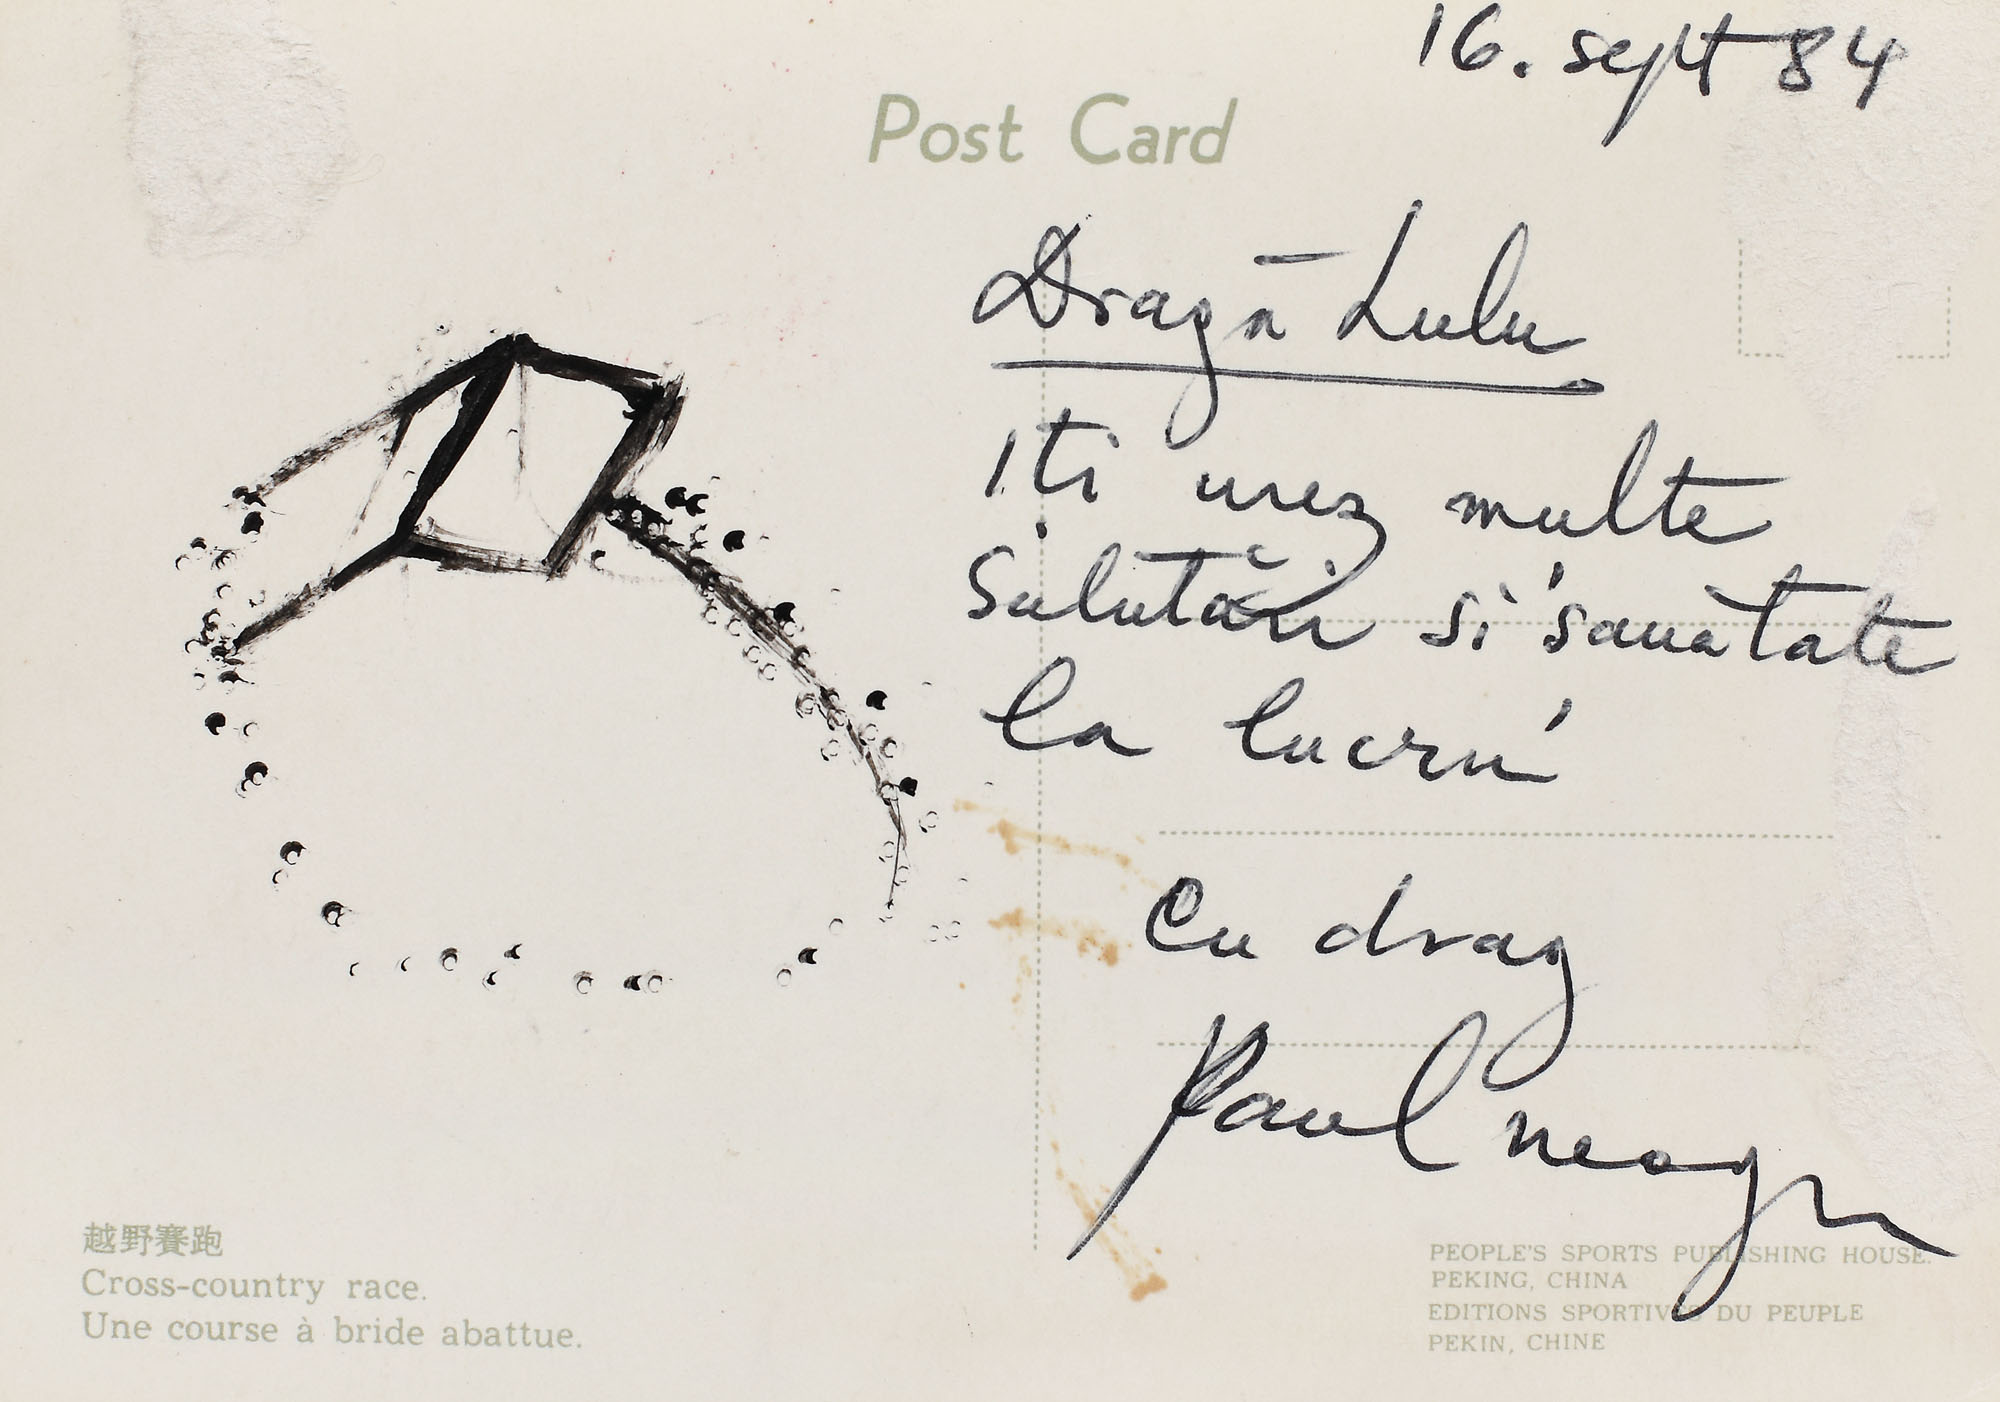 16. sept 84
Post Card
Dragă Lulu
Iti urez multe
Salutări si sanatate
la lucru
Cu drag
Paul neagu
越野賽跑
Cross-country race.
Une course à bride abattue.
PEOPLE'S SPORTS PUBLISHING HOUSE.
PEKING, CHINA
EDITIONS SPORTIVES DU PEUPLE
PEKIN, CHINE